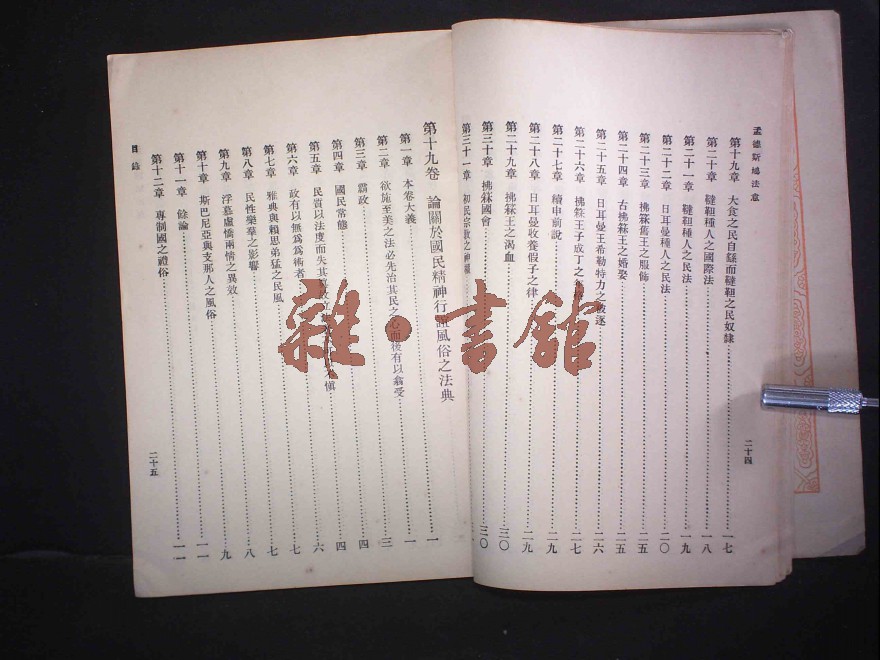 孟德斯鳩法意
第十九章 大食之民自繇而韃靼之民奴隸 一七
第二十章 韃靼種人之國際法 一八
第二十一章 韃靼種人之民法 一九
第二十二章 日耳曼種人之民法 二〇
第二十三章 拂箖舊王之服飾 二五
第二十四章 古拂箖王之婚娶 二五
第二十五章 日耳曼王希勒特力之 逐 二六
第二十六章 拂箖王子成丁之 二七
第二十七章 續申前說 二九
第二十八章 日耳曼收養假子之律 二九
第二十九章 拂箖王之渴血 三〇
第三十章 拂箖國會 三〇
第三十一章 初民宗教之神權
二十四
第十九卷 論關於國民精神行誼風俗之法典 一
第一章 本卷大義 一
第二章 欲施至美之法必先治其民之心而後有以翕受 三
第三章 霸政 四
第四章 國民常態 四
第五章 民質以法度而失其 慎 六
第六章 政有以無為為術者 七
第七章 雅典與賴思弟猛之民風 七
第八章 民性樂羣之影響 八
第九章 浮慕虛憍兩情之異效 九
第十章 斯巴尼亞與支那人之風俗 一一
第十一章 餘論 一一
第十二章 專制國之禮俗
目錄
二十五
雜·書館